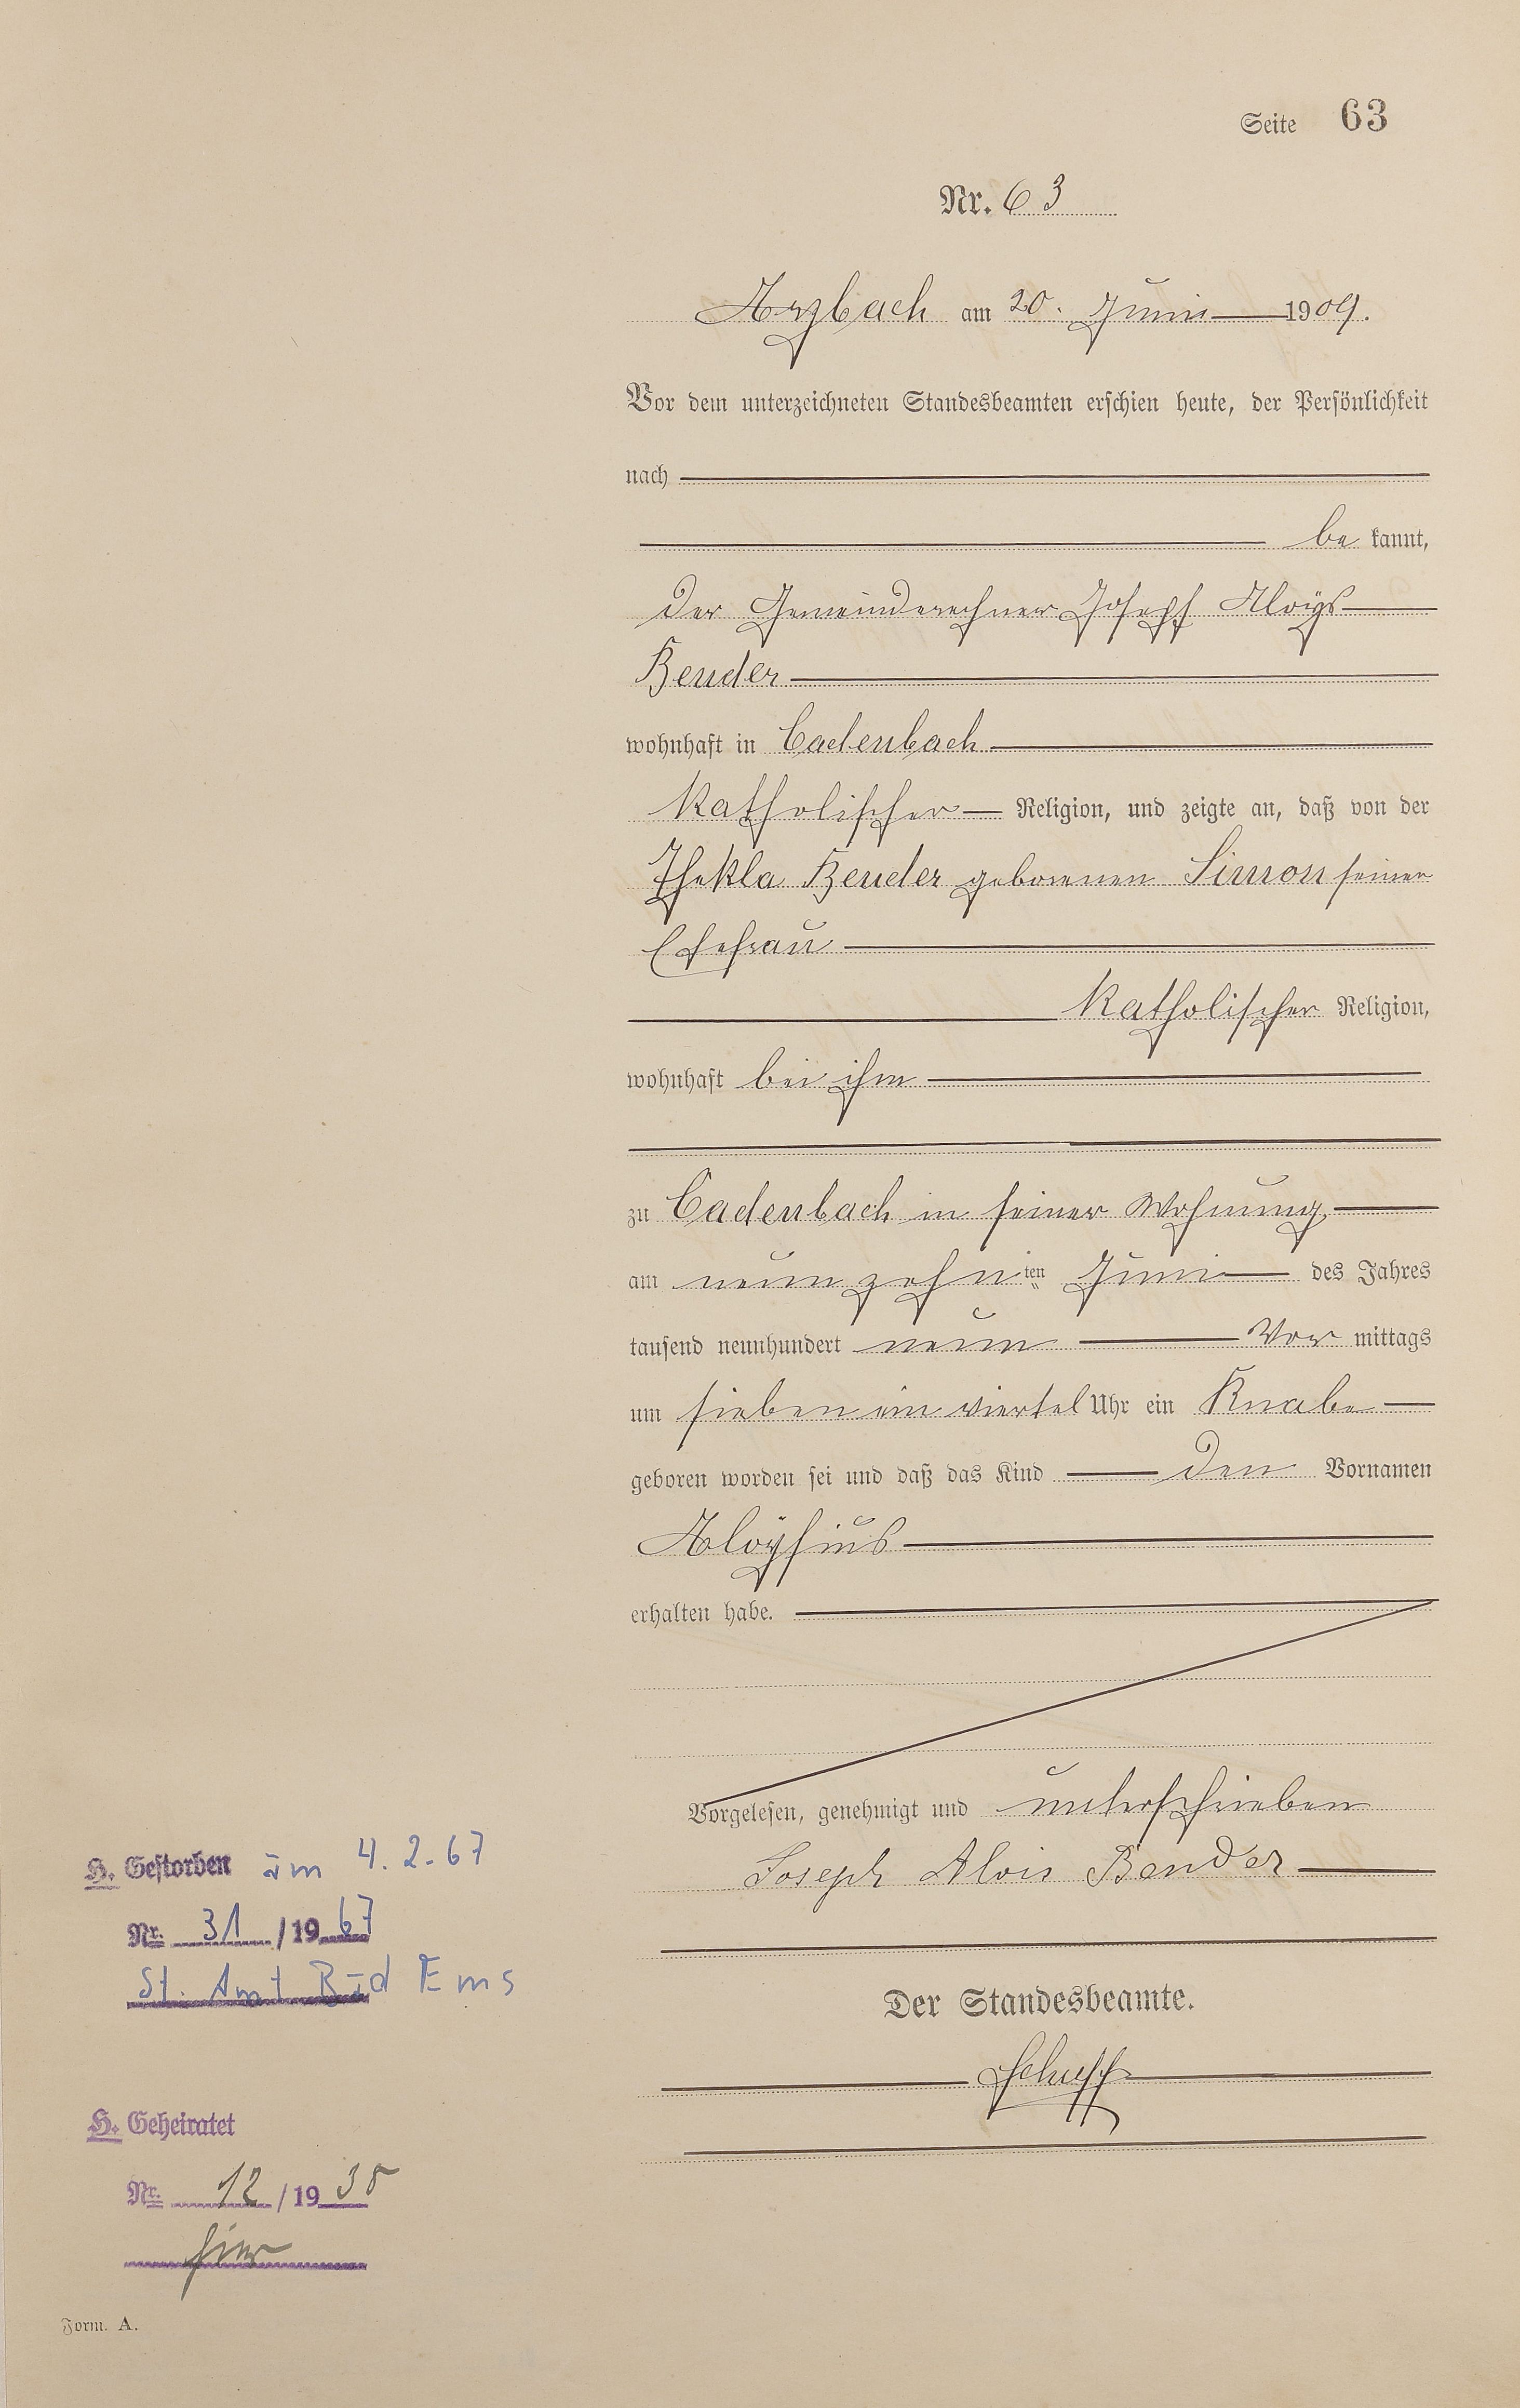 Seite 63
Nr. 63
Arzbach am 20. Juni 1909.
Vor dem unterzeichneten Standesbeamten erschien heute, der Persönlichkeit
nach
be kannt,
der Gemeinderechner Joseph Aloys
Bender
wohnhaft in Cadenbach
katholischer Religion, und zeigte an, daß von der
Thekla Bender geborenen Simon seiner
Ehefrau
katholischer Religion,
wohnhaft bei ihm
zu Cadenbach in seiner Wohnung
am neunzehnten Juni des Jahres
tausend neunhundert neun Vor mittags
um sieben ein viertel Uhr ein Knabe
geboren worden sei und daß das Kind den Vornamen
Aloÿsius
erhalten habe.
Vorgelesen, genehmigt und unterschrieben
Joseph Alois Bender
Der Standesbeamte.
H. Gestorben am 4.2.67
Nr. 31 / 1967
St. Amt Bad Ems
H. Geheiratet
Nr. 12 / 1938
hier
Form. A.